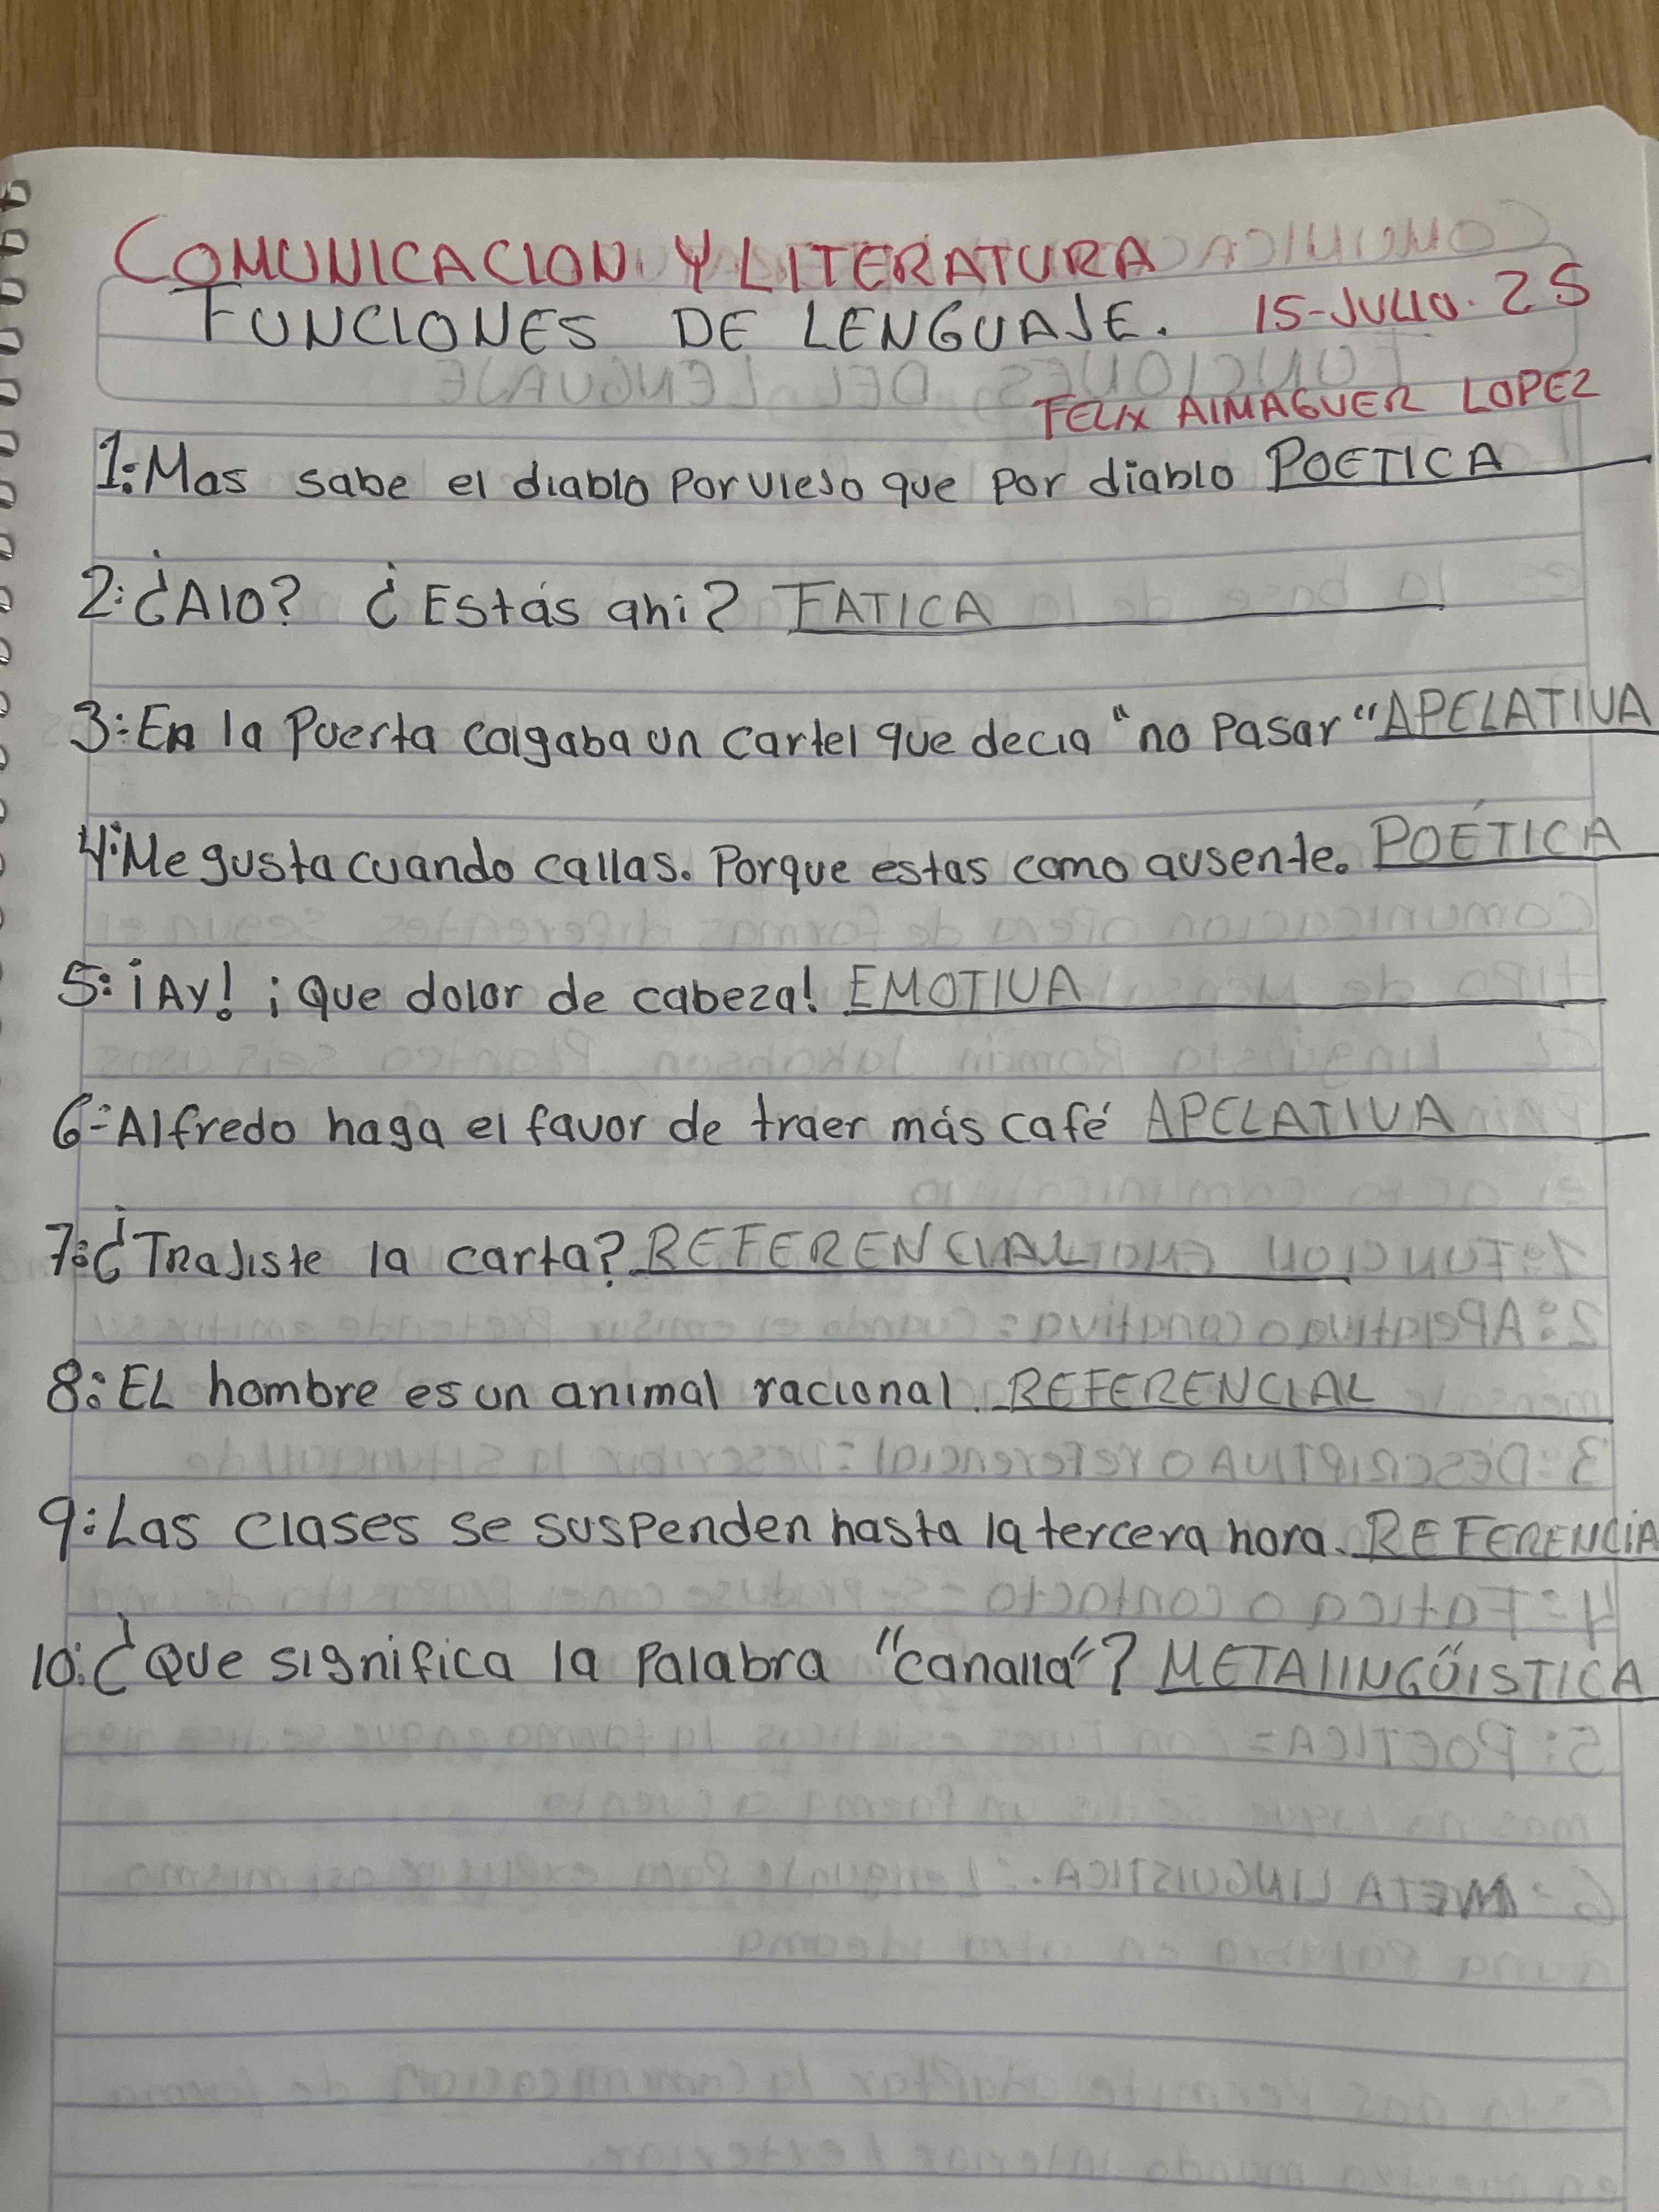 COMUNICACION Y LITERATURA
FUNCIONES DE LENGUAJE. 15-JULIO.25
FELIX AlMAGUER LOPEZ
1: Mas sabe el diablo por viejo que por diablo POETICA
2: ¿Alo? ¿Estás ahi? FATICA
3: En la puerta colgaba un cartel que decia "no pasar" APELATIVA
4: Me gusta cuando callas. Porque estas como ausente. POÉTICA
5: ¡Ay! ¡Que dolor de cabeza! EMOTIVA
6: Alfredo haga el favor de traer más café APELATIVA
7: ¿Trajiste la carta? REFERENCIAL
8: EL hombre es un animal racional. REFERENCIAL
9: Las clases se suspenden hasta la tercera hora. REFERENCIA
10: ¿Que significa la palabra "canalla"? METAlINGÜISTICA